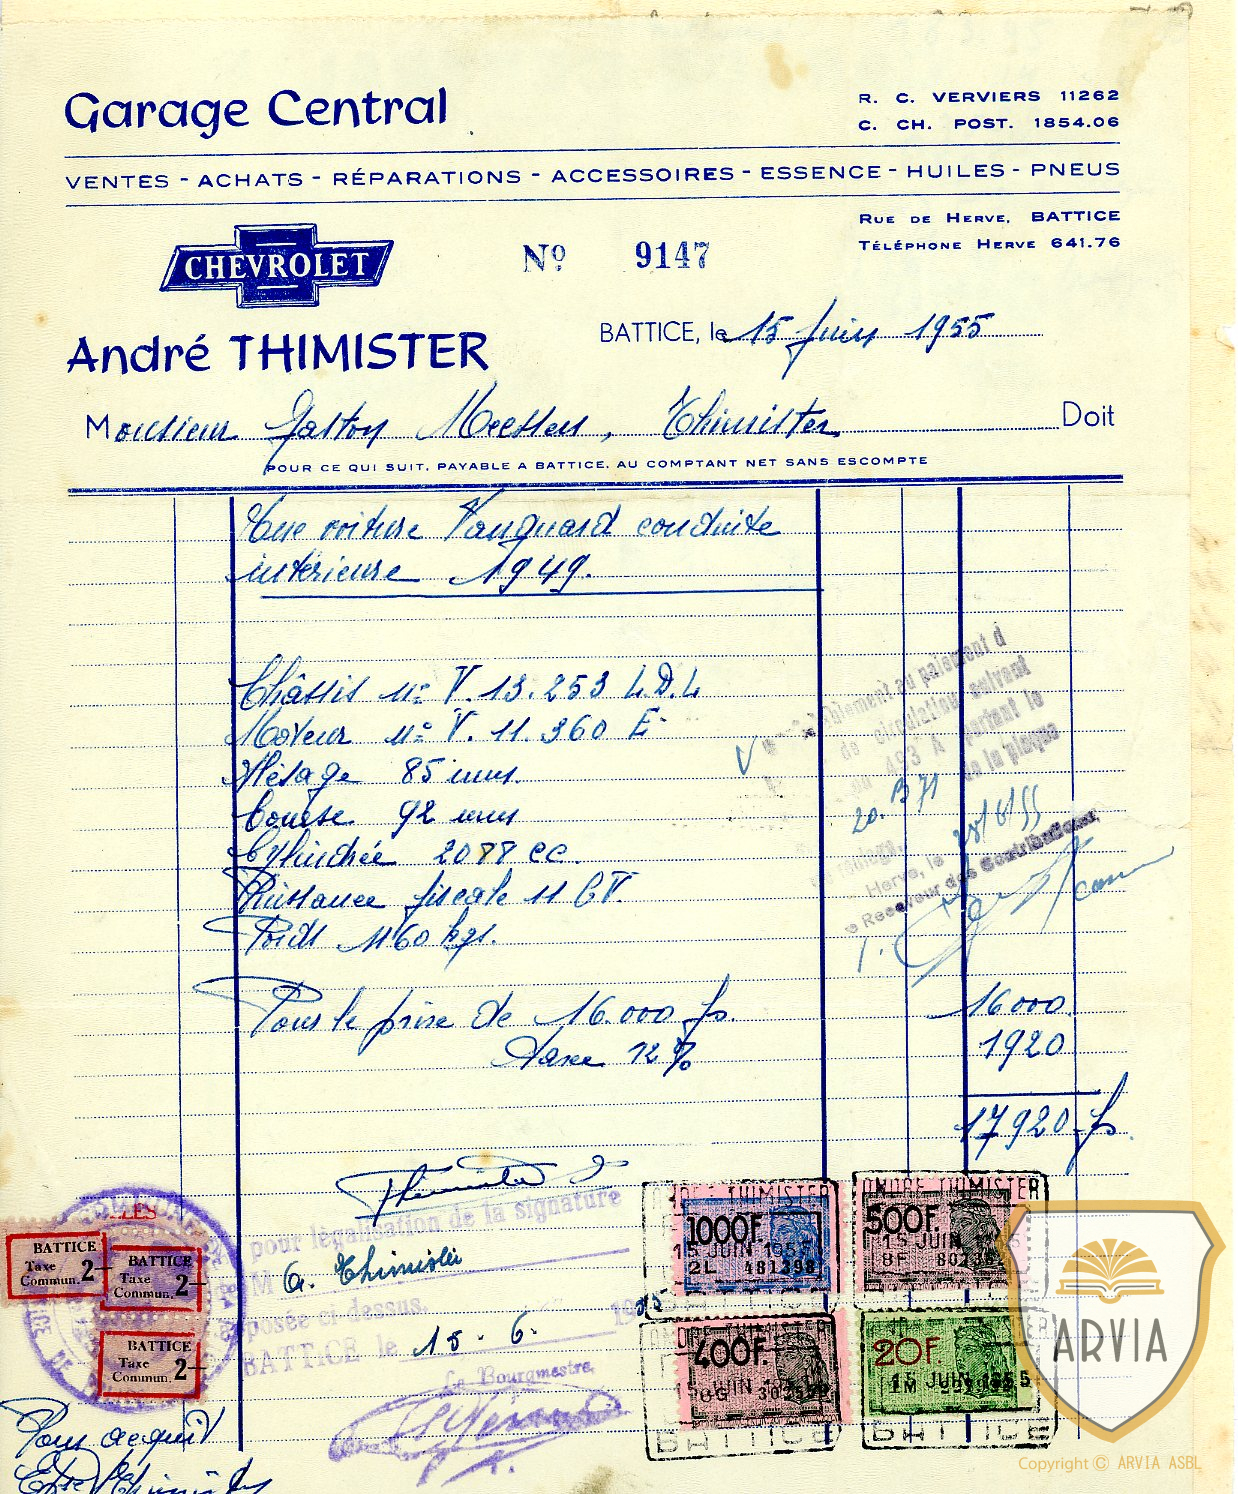 Garage Central
R. C. VERVIERS 11262
C. CH. POST. 1854.06
VENTES - ACHATS - RÉPARATIONS - ACCESSOIRES - ESSENCE - HUILES - PNEUS
RUE DE HERVE, BATTICE
TÉLÉPHONE HERVE 641.76
CHEVROLET
Nº 9147
BATTICE, le 15 Juin 1955
André THIMISTER
Monsieur Gaston Meessen, Thimister Doit
POUR CE QUI SUIT, PAYABLE A BATTICE, AU COMPTANT NET SANS ESCOMPTE
Une voiture Vanguard conduite
intérieure 1949.
Châssis nº V. 13.253 L.D.L
Moteur nº V. 11.360 E
Alésage 85 mms.
Course 92 mms
Cylindrée 2088 cc.
Puissance fiscale 11 CV.
Poids 1160 kgs.
paiement d
de circulation suivant
493 A portant le
de la plaque
20. B 71
Herve, le 28/6/55
Receveur des Contributions
Pour le prix de 16.000 fs. 16000
Taxe 12% 1920
17920 fs.
Thimister
pour légalisation de la signature
M A. Thimister
posée ci dessus.
BATTICE le 15-6- 1955
Le Bourgmestre,
BATTICE
Taxe
Commun. 2-
BATTICE
Taxe
Commun. 2-
BATTICE
Taxe
Commun. 2-
ANDRE THIMISTER
1000F.
15 JUIN 1955
2L 481398
ANDRE THIMISTER
500F.
15 JUIN 1955
8F
400F.
15 JUIN 1955
20F.
15 JUIN 1955
1M
BATTICE
BATTICE
Pour acquit
Thimister
ARVIA
Copyright © ARVIA ASBL